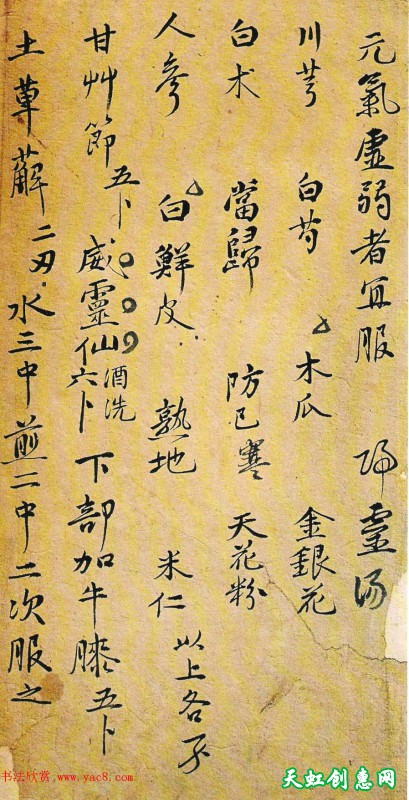 元氣虛弱者宜服 归霊汤
川芎 白芍 木瓜 金銀花
白术 當歸 防已 天花粉
人參 白鮮皮 熟地 米仁 以上各
甘艸節五卜 威靈仙酒洗六卜 下部加牛膝五卜
土萆薢二刄 水三中煎二中二次服之
书法欣赏 www.yac8.com
天虹创惠网